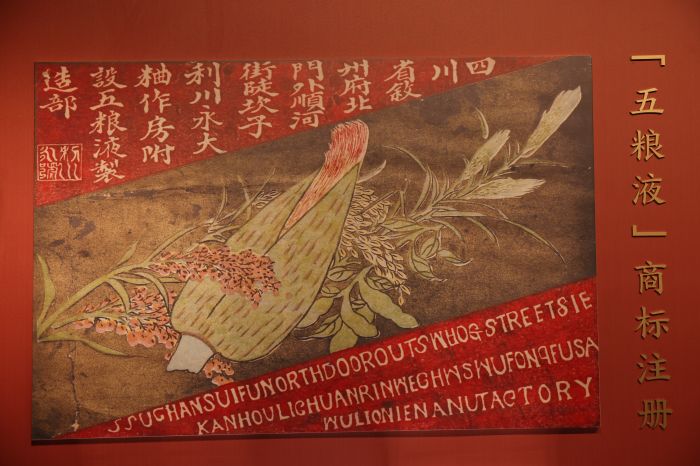 「五粮液」商标注册
四
川
省敘
州府北
門外順河
街陡坎子
利川永大
粬作房附
設五粮液製
造部
JSUGHANSUIFUNORTHDOOROUTSWHOG-STREETSIE
KANHOULIGHUANRINWEGHWSWUFONQFUSA
WULIONIENANUTACTORY